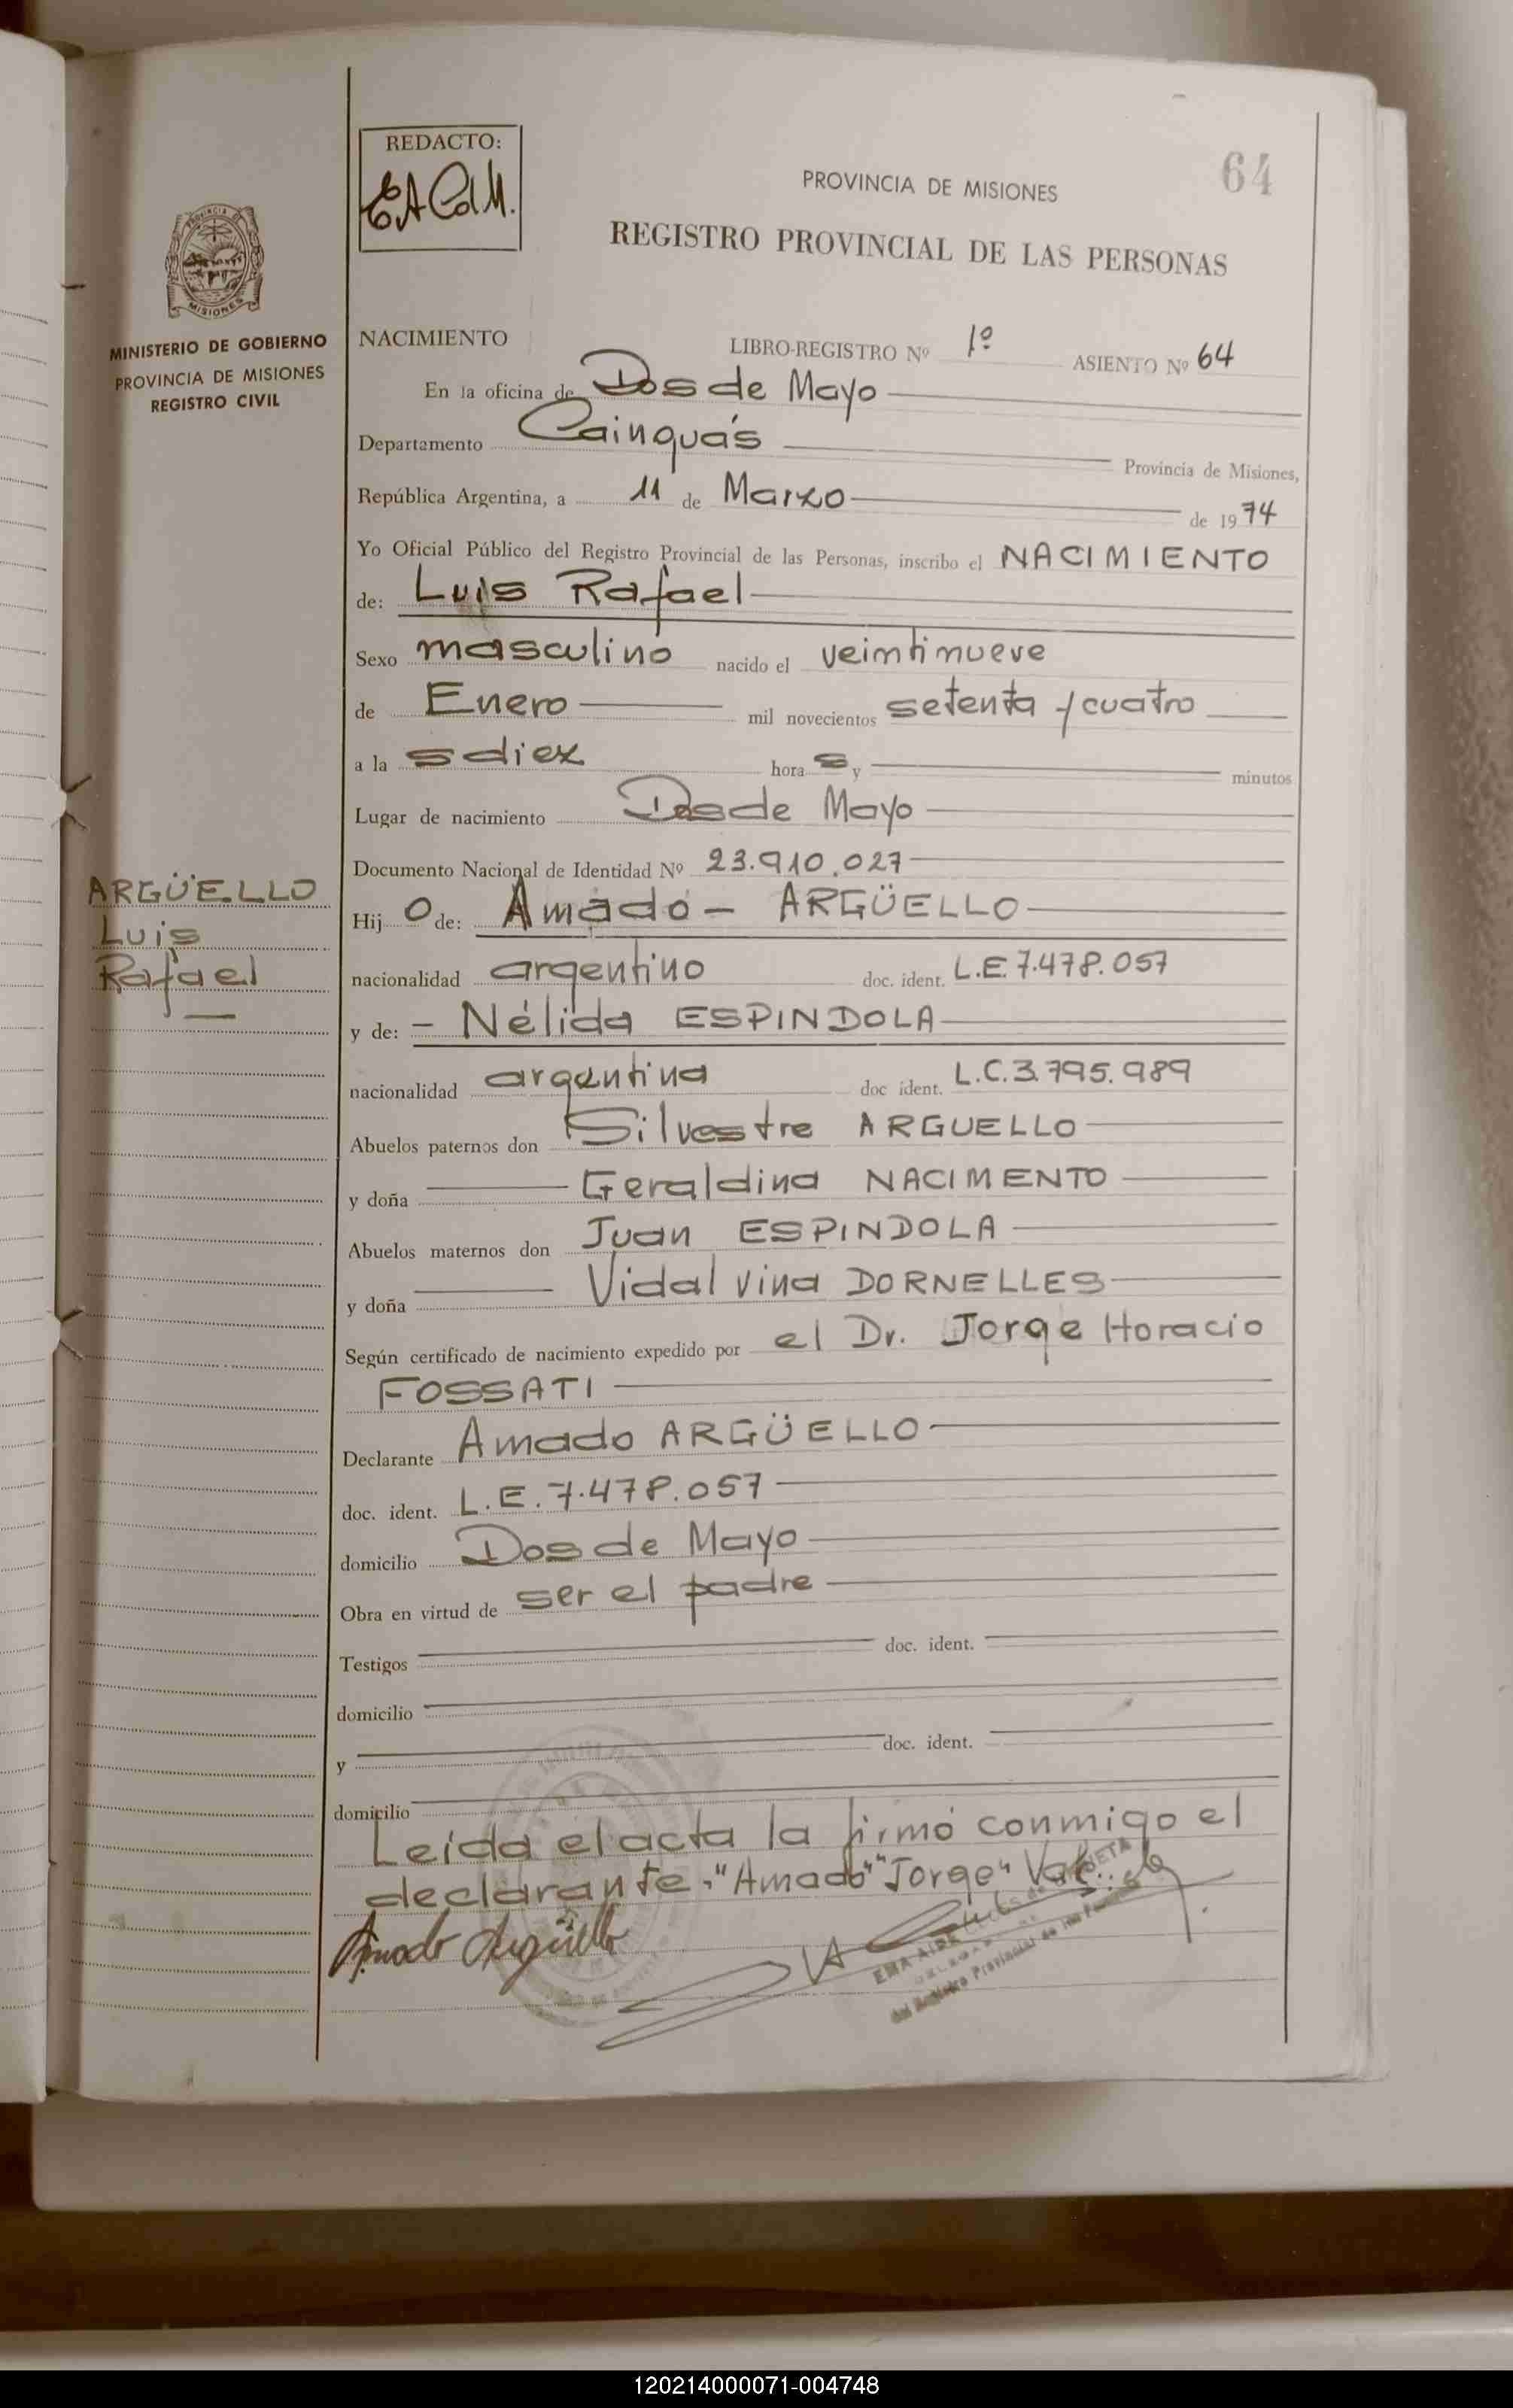 REDACTO:
EACdM.
64
PROVINCIA DE MISIONES
REGISTRO PROVINCIAL DE LAS PERSONAS
PROVINCIA DE
MISIONES
MINISTERIO DE GOBIERNO
PROVINCIA DE MISIONES
REGISTRO CIVIL
NACIMIENTO LIBRO-REGISTRO Nº 1º ASIENTO Nº 64
En la oficina de Dos de Mayo
Departamento Cainguás Provincia de Misiones,
República Argentina, a 11 de Marzo de 1974
Yo Oficial Público del Registro Provincial de las Personas, inscribo el NACIMIENTO
de: Luis Rafael
Sexo masculino nacido el veintinueve
de Enero mil novecientos setenta y cuatro
a la s diez hora s y minutos
Lugar de nacimiento Dos de Mayo
Documento Nacional de Identidad Nº 23.910.027
ARGÜELLO
Luis
Rafael
Hij o de: Amado - ARGÜELLO
nacionalidad argentino doc. ident. L.E. 7.478.057
y de: - Nélida ESPINDOLA
nacionalidad argentina doc ident. L.C. 3.795.989
Abuelos paternos don Silvestre ARGUELLO
y doña Geraldina NACIMENTO
Abuelos maternos don Juan ESPINDOLA
y doña Vidal vina DORNELLES
Según certificado de nacimiento expedido por el Dr. Jorge Horacio
FOSSATI
Declarante Amado ARGÜELLO
doc. ident. L.E. 7.478.057
domicilio Dos de Mayo
Obra en virtud de ser el padre
Testigos doc. ident.
domicilio
y doc. ident.
domicilio
Leída el acta la firmó conmigo el
declarante. "Amado" "Jorge" Vale.
Amado Argüello
EMA AIDE
del Registro Provincial de las Personas
120214000071-004748